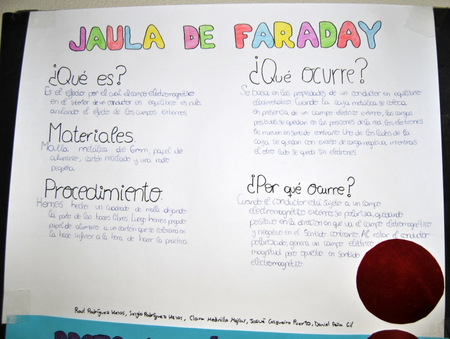 JAULA DE FARADAY
¿Qué es?
Es el efecto por el cual el campo electromagnético
en el interior de un conductor en equilibrio es nulo,
anulando el efecto de los campos externos.
Materiales
Malla metálica de 6mm, papel de
aluminio, cartón mojado y una radio
pequeña.
Procedimiento
Hemos hecho un cuadrado de malla dejando
la parte de las bases libres. Luego hemos pegado
papel de aluminio a un cartón que se colocará en
la base inferior a la hora de hacer la práctica.
¿Qué ocurre?
Se basa en las propiedades de un conductor en equilibrio
electrostático. Cuando la caja metálica se coloca
en presencia de un campo eléctrico externo, las cargas
positivas se quedan en las posiciones de la red. Los electrones
se mueven en sentido contrario. Uno de los lados de la
caja, se queda con exceso de carga negativa, mientras
el otro lado se queda sin electrones.
¿Por qué ocurre?
Cuando el conductor está sujeto a un campo
electromagnético externo se polariza, quedando
positivo en la dirección en que va el campo electromagnético
y negativo en el sentido contrario. Al estar el conductor
polarizado, genera un campo eléctrico
magnitud pero opuesto en sentido
electromagnético
Raúl Rodríguez, Sergio Rodríguez, Clara Medrilla, Josué Cerquera Puerto, Daniel Peña Gil